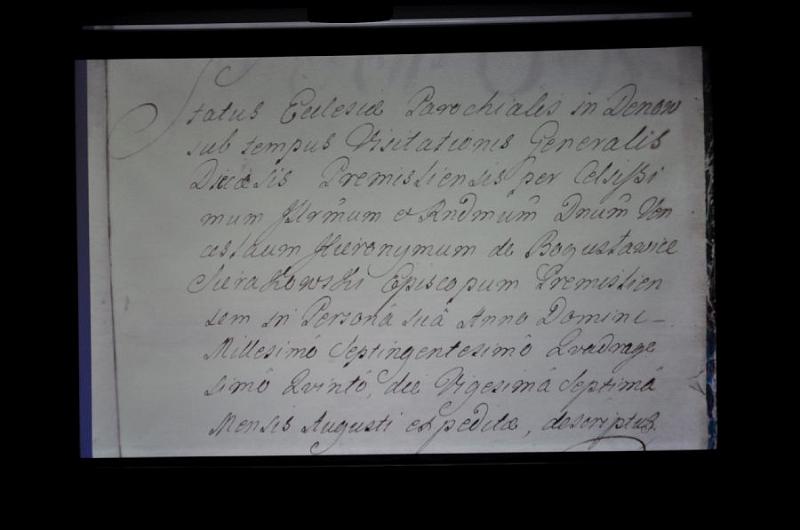 Status Ecclesiæ Parochialis in Denow
sub tempus Visitationis Generalis
Diœcesis Premisliensis per Celsissi
mum Illrm̃um et Rndm̃um Dnum̃ Ven
ceslaum Hieronymum de Bogusławice
Sierakowski Episcopum Premislien
sem in Personâ suâ Anno Domini
Millesimô Septingentesimô Quadrage
simô Quintô, die Vigesimâ Septimâ
Mensis Augusti expeditæ, descriptus